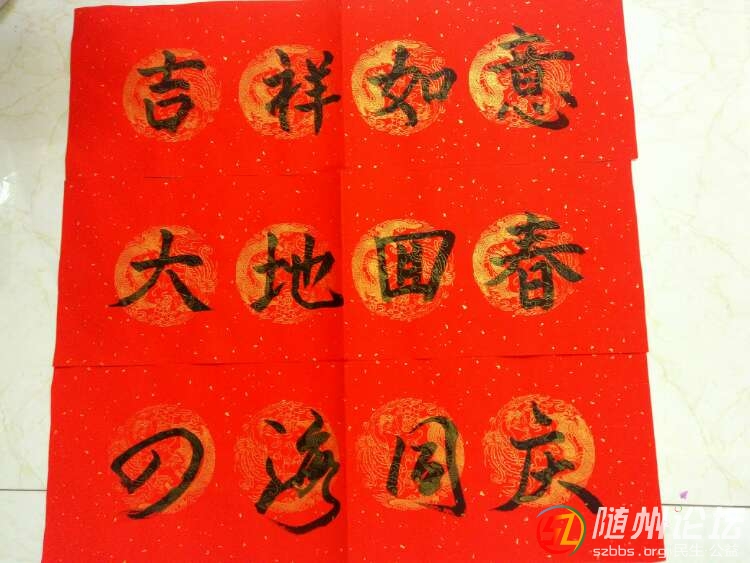 吉祥如意
大地回春
四海同庆
随州论坛
szbbs.org|民生 公益